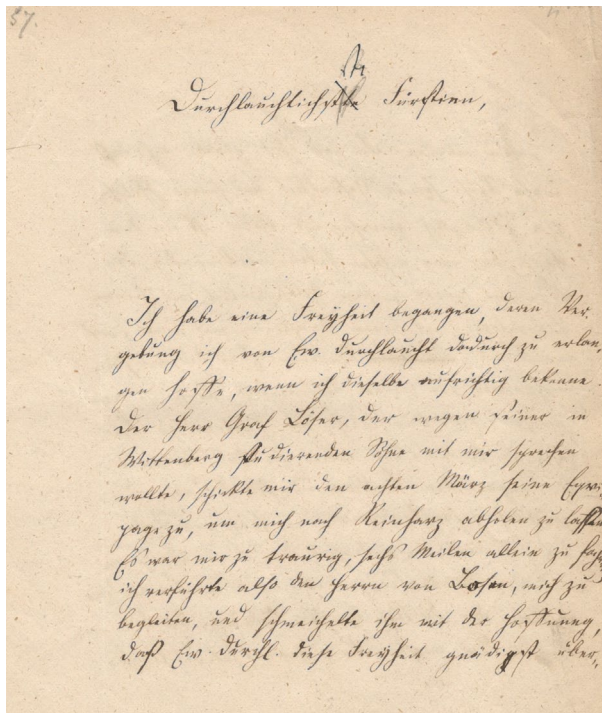 57.
Durchlauchtichste Fürstien,
Ich habe eine Freyheit begangen, deren Ver-
gebung ich von Ew. Durchlaucht dadurch zu erlan-
gen hoffe, wenn ich dieselbe aufrichtig bekenne.
Der Herr Graf Löser, der wegen seiner in
Wittenberg studierenden Söhne mit mir sprechen
wollte, schickte mir den achten März seine Equi-
page zu, um mich nach Reinharz abholen zu lassen
Es war mir zu traurig, sechs Meilen allein zu
ich verführte also den Herrn von Bosen, mich zu
begleiten, und schmeichelte ihm mit der Hoffnung,
daß Ew. Durchl. diese Freyheit gnädigst über-